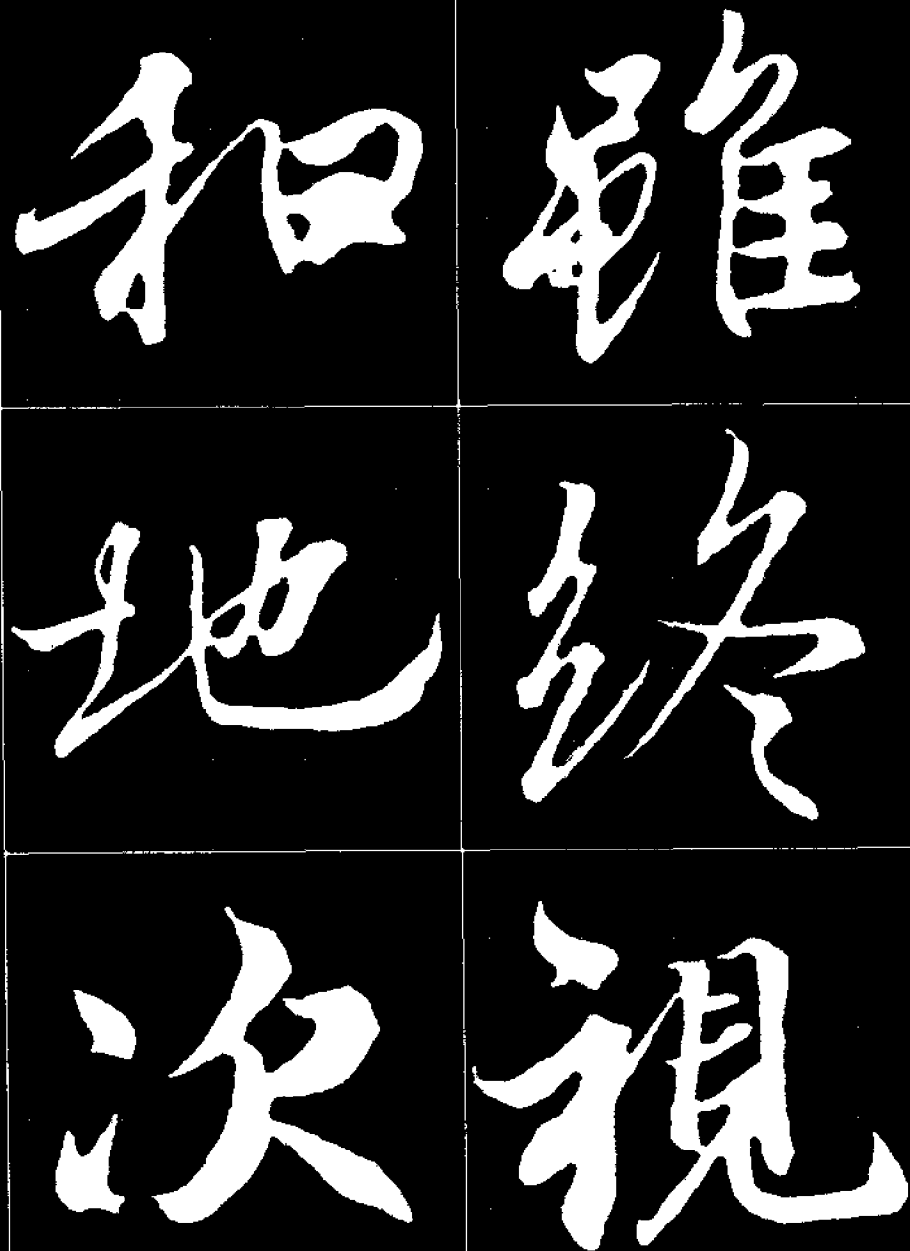 雖終視
和地次